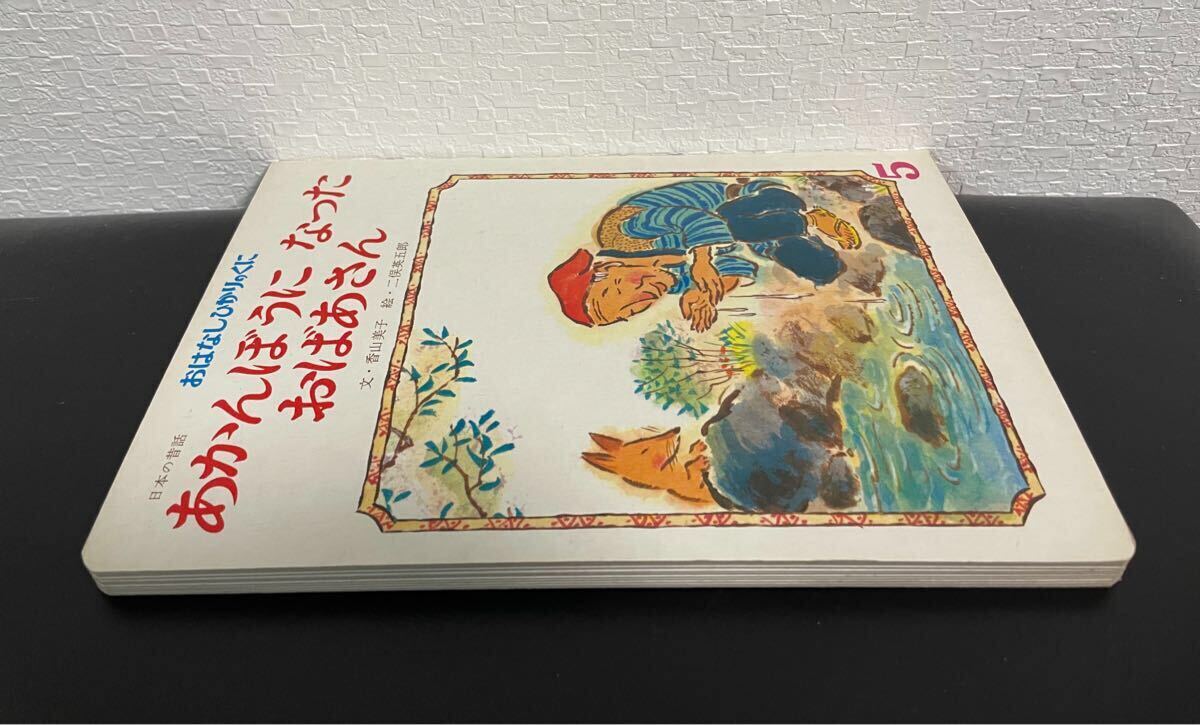 おはなしひかりのくに
日本の昔話
あかんぼうに なった
おばあさん
文・香山美子 絵・二俣英五郎
5